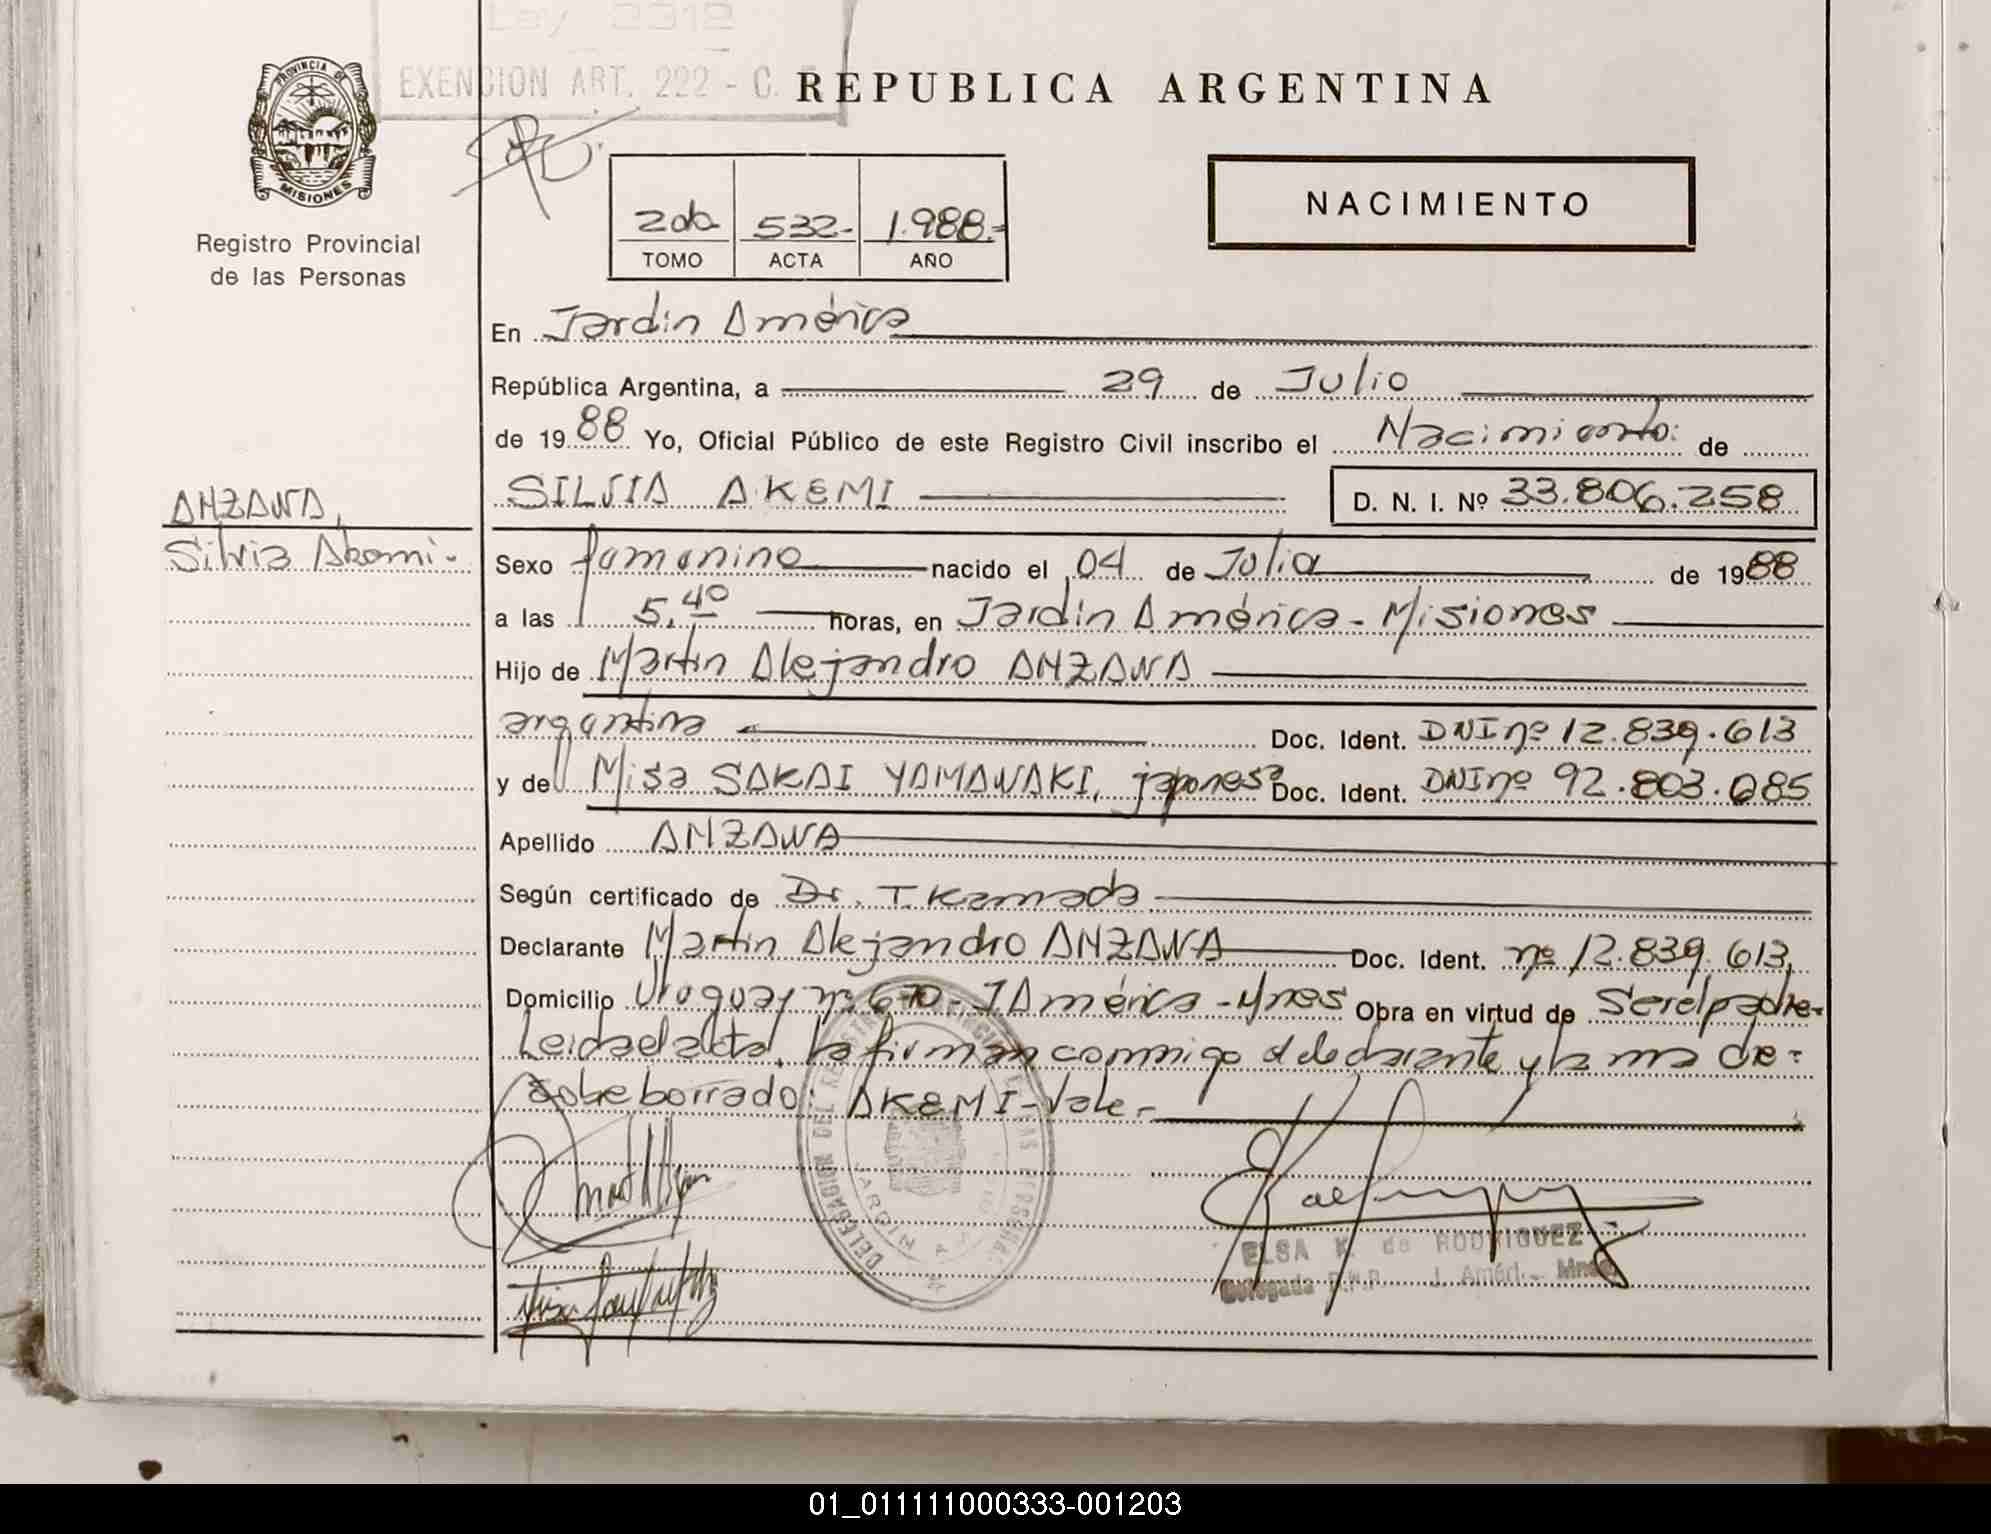 Ley 2312
EXENCION ART. 222 - C.
REPUBLICA ARGENTINA
PROVINCIA DE
MISIONES
Registro Provincial
de las Personas
2do 532- 1.988.-
TOMO ACTA AÑO
NACIMIENTO
En Jardín América
República Argentina, a 29 de Julio
de 1988 Yo, Oficial Público de este Registro Civil inscribo el Nacimiento: de
SILVIA AKEMI D. N. I. Nº 33.806.258
ANZAWA,
Silvia Akemi-
Sexo femenino nacido el 04 de Julio de 1988
a las 5,40 horas, en Jardín América - Misiones
Hijo de Martín Alejandro ANZAWA
argentina Doc. Ident. DNI nº 12.839.613
y de Misa SAKAI YAMAWAKI, japonesa Doc. Ident. DNI nº 92.803.085
Apellido ANZAWA
Según certificado de Dr. T. Kamada
Declarante Martín Alejandro ANZAWA Doc. Ident. nº 12.839.613,
Domicilio Uruguay nº 670 - J América - Mnes Obra en virtud de Ser el padre-
Leida el acta, la firman conmigo el declarante y la madre=
Sobre borrado: AKEMI - Vale.-
ELSA K. de RODRIGUEZ
Delegada R.P.P. J. Amér. - Mnes
01_011111000333-001203